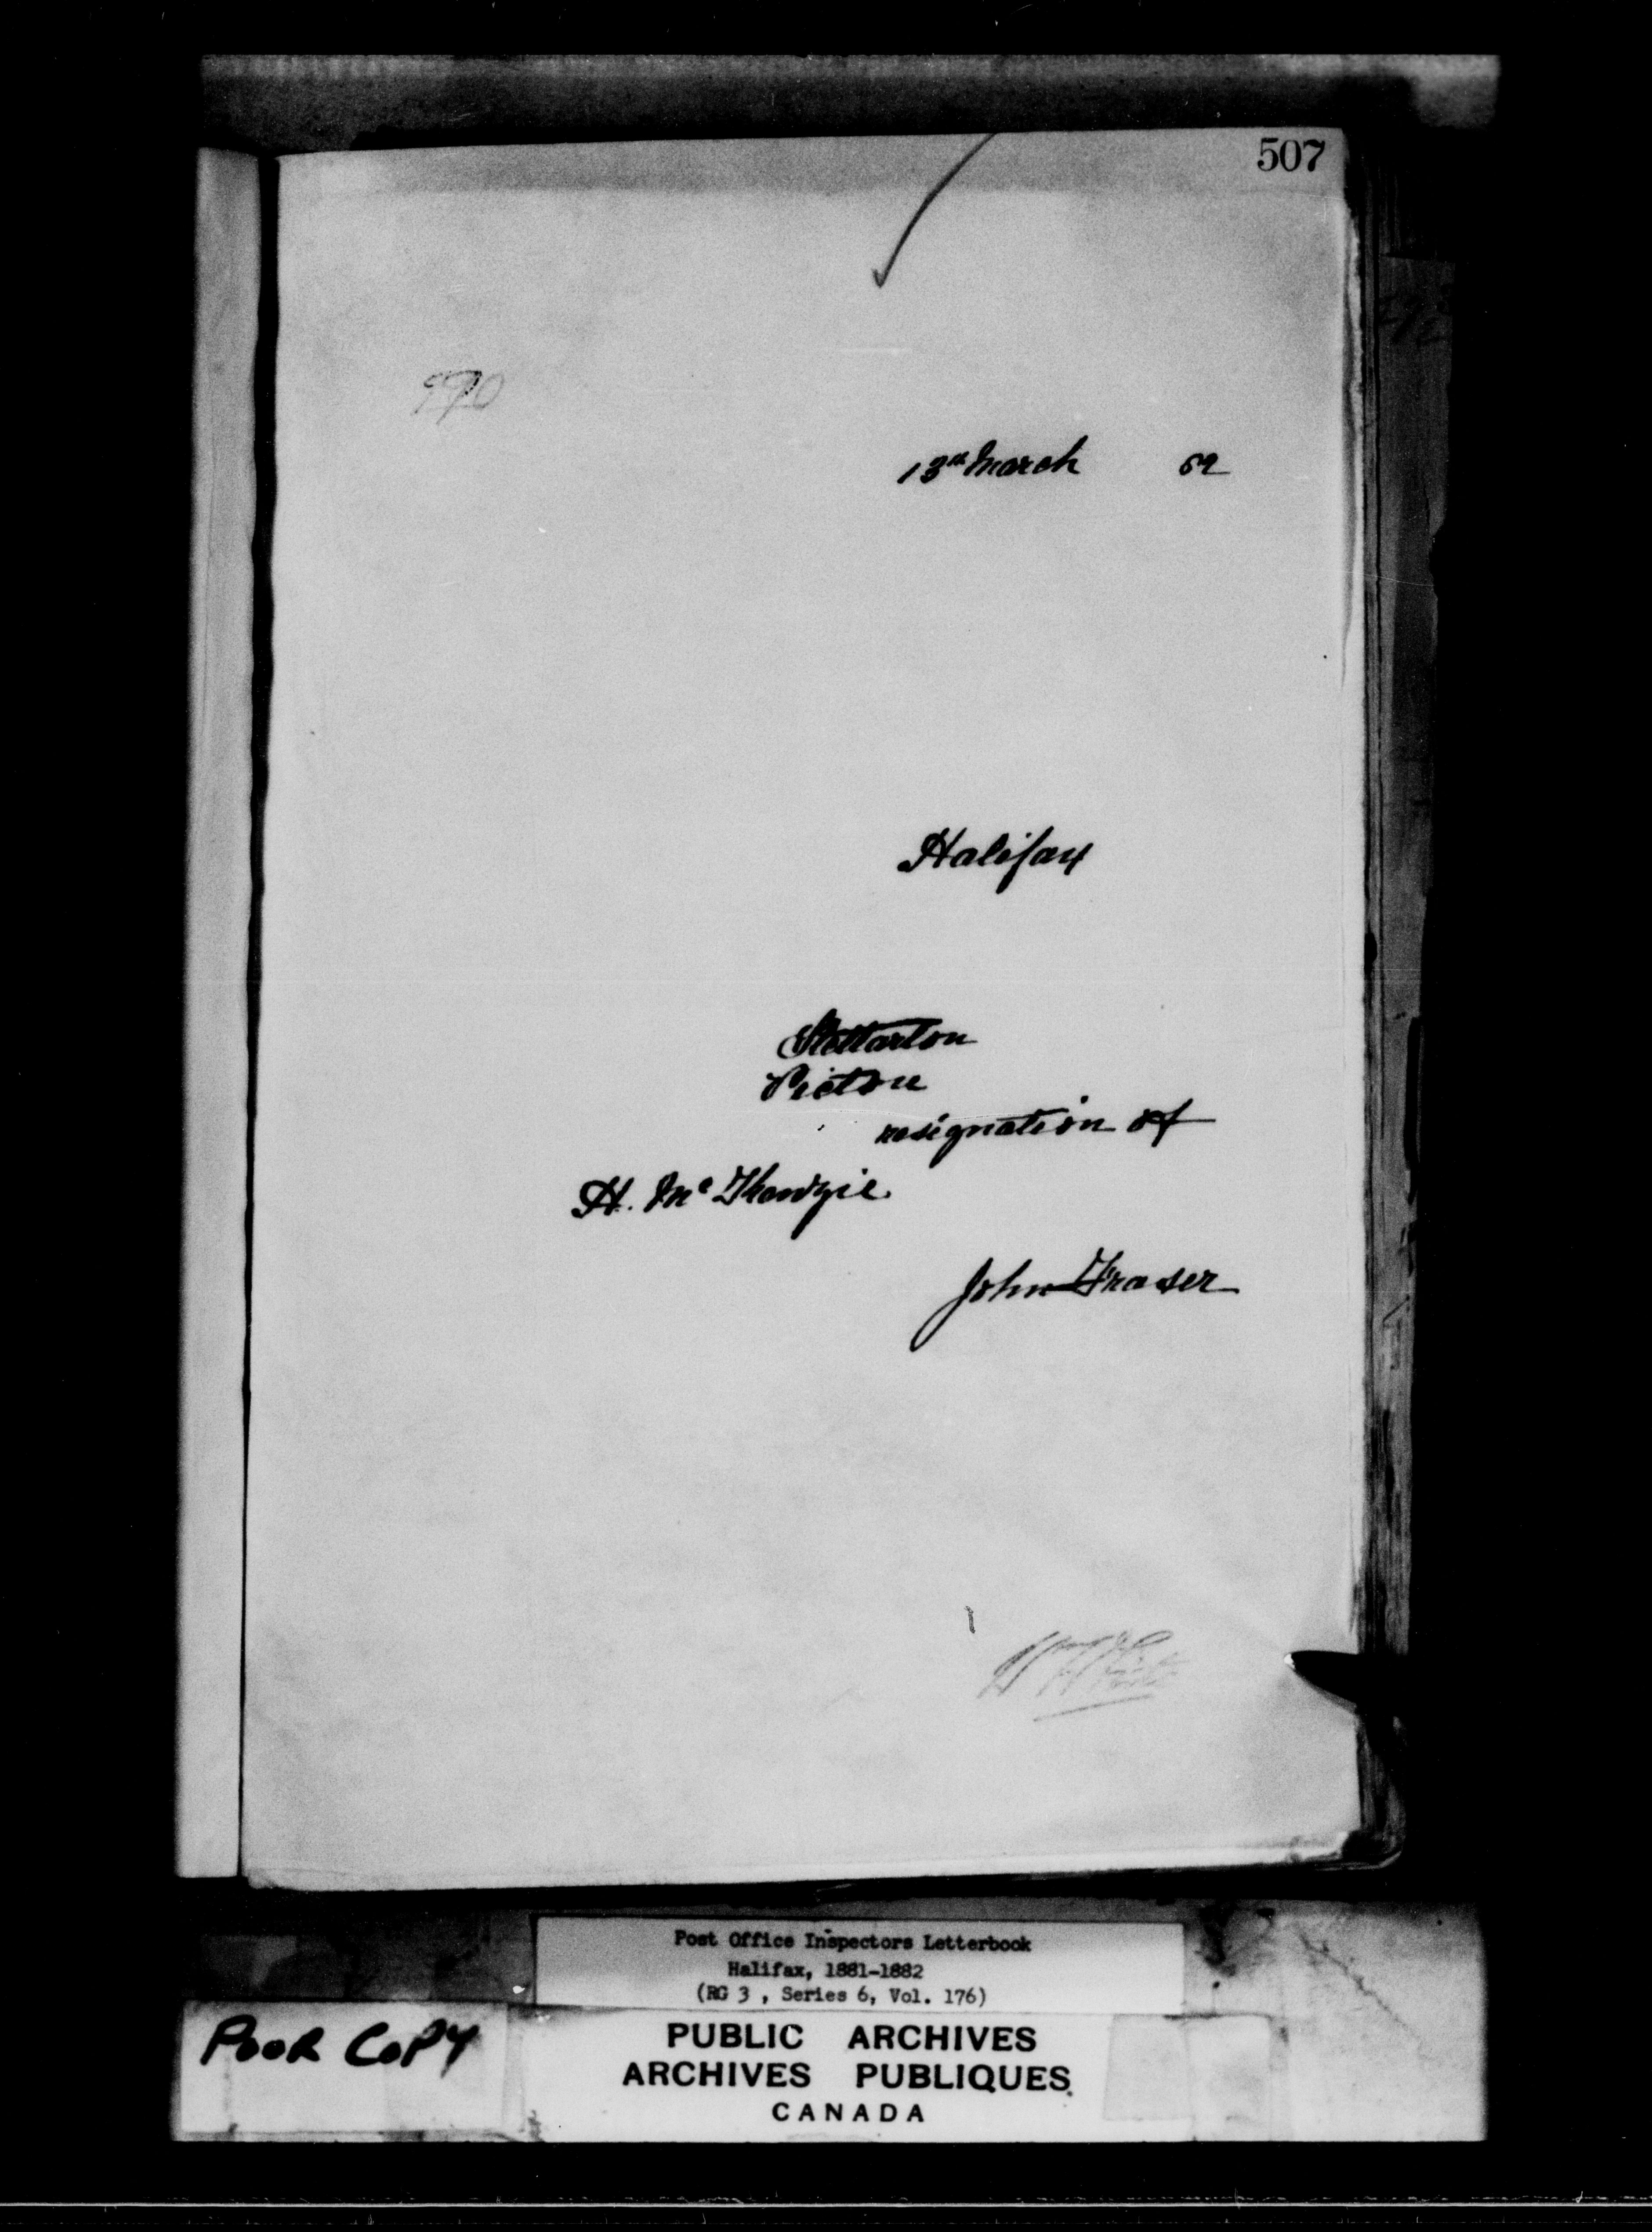 507
13th March 82
Halifax
Stellarton
Pictou
resignation of
H. McKenzie
John Fraser
Post Office Inspectors Letterbook
Halifax, 1881-1882
(RG 3 , Series 6, Vol. 176)
POOR COPY
PUBLIC ARCHIVES
ARCHIVES PUBLIQUES
CANADA